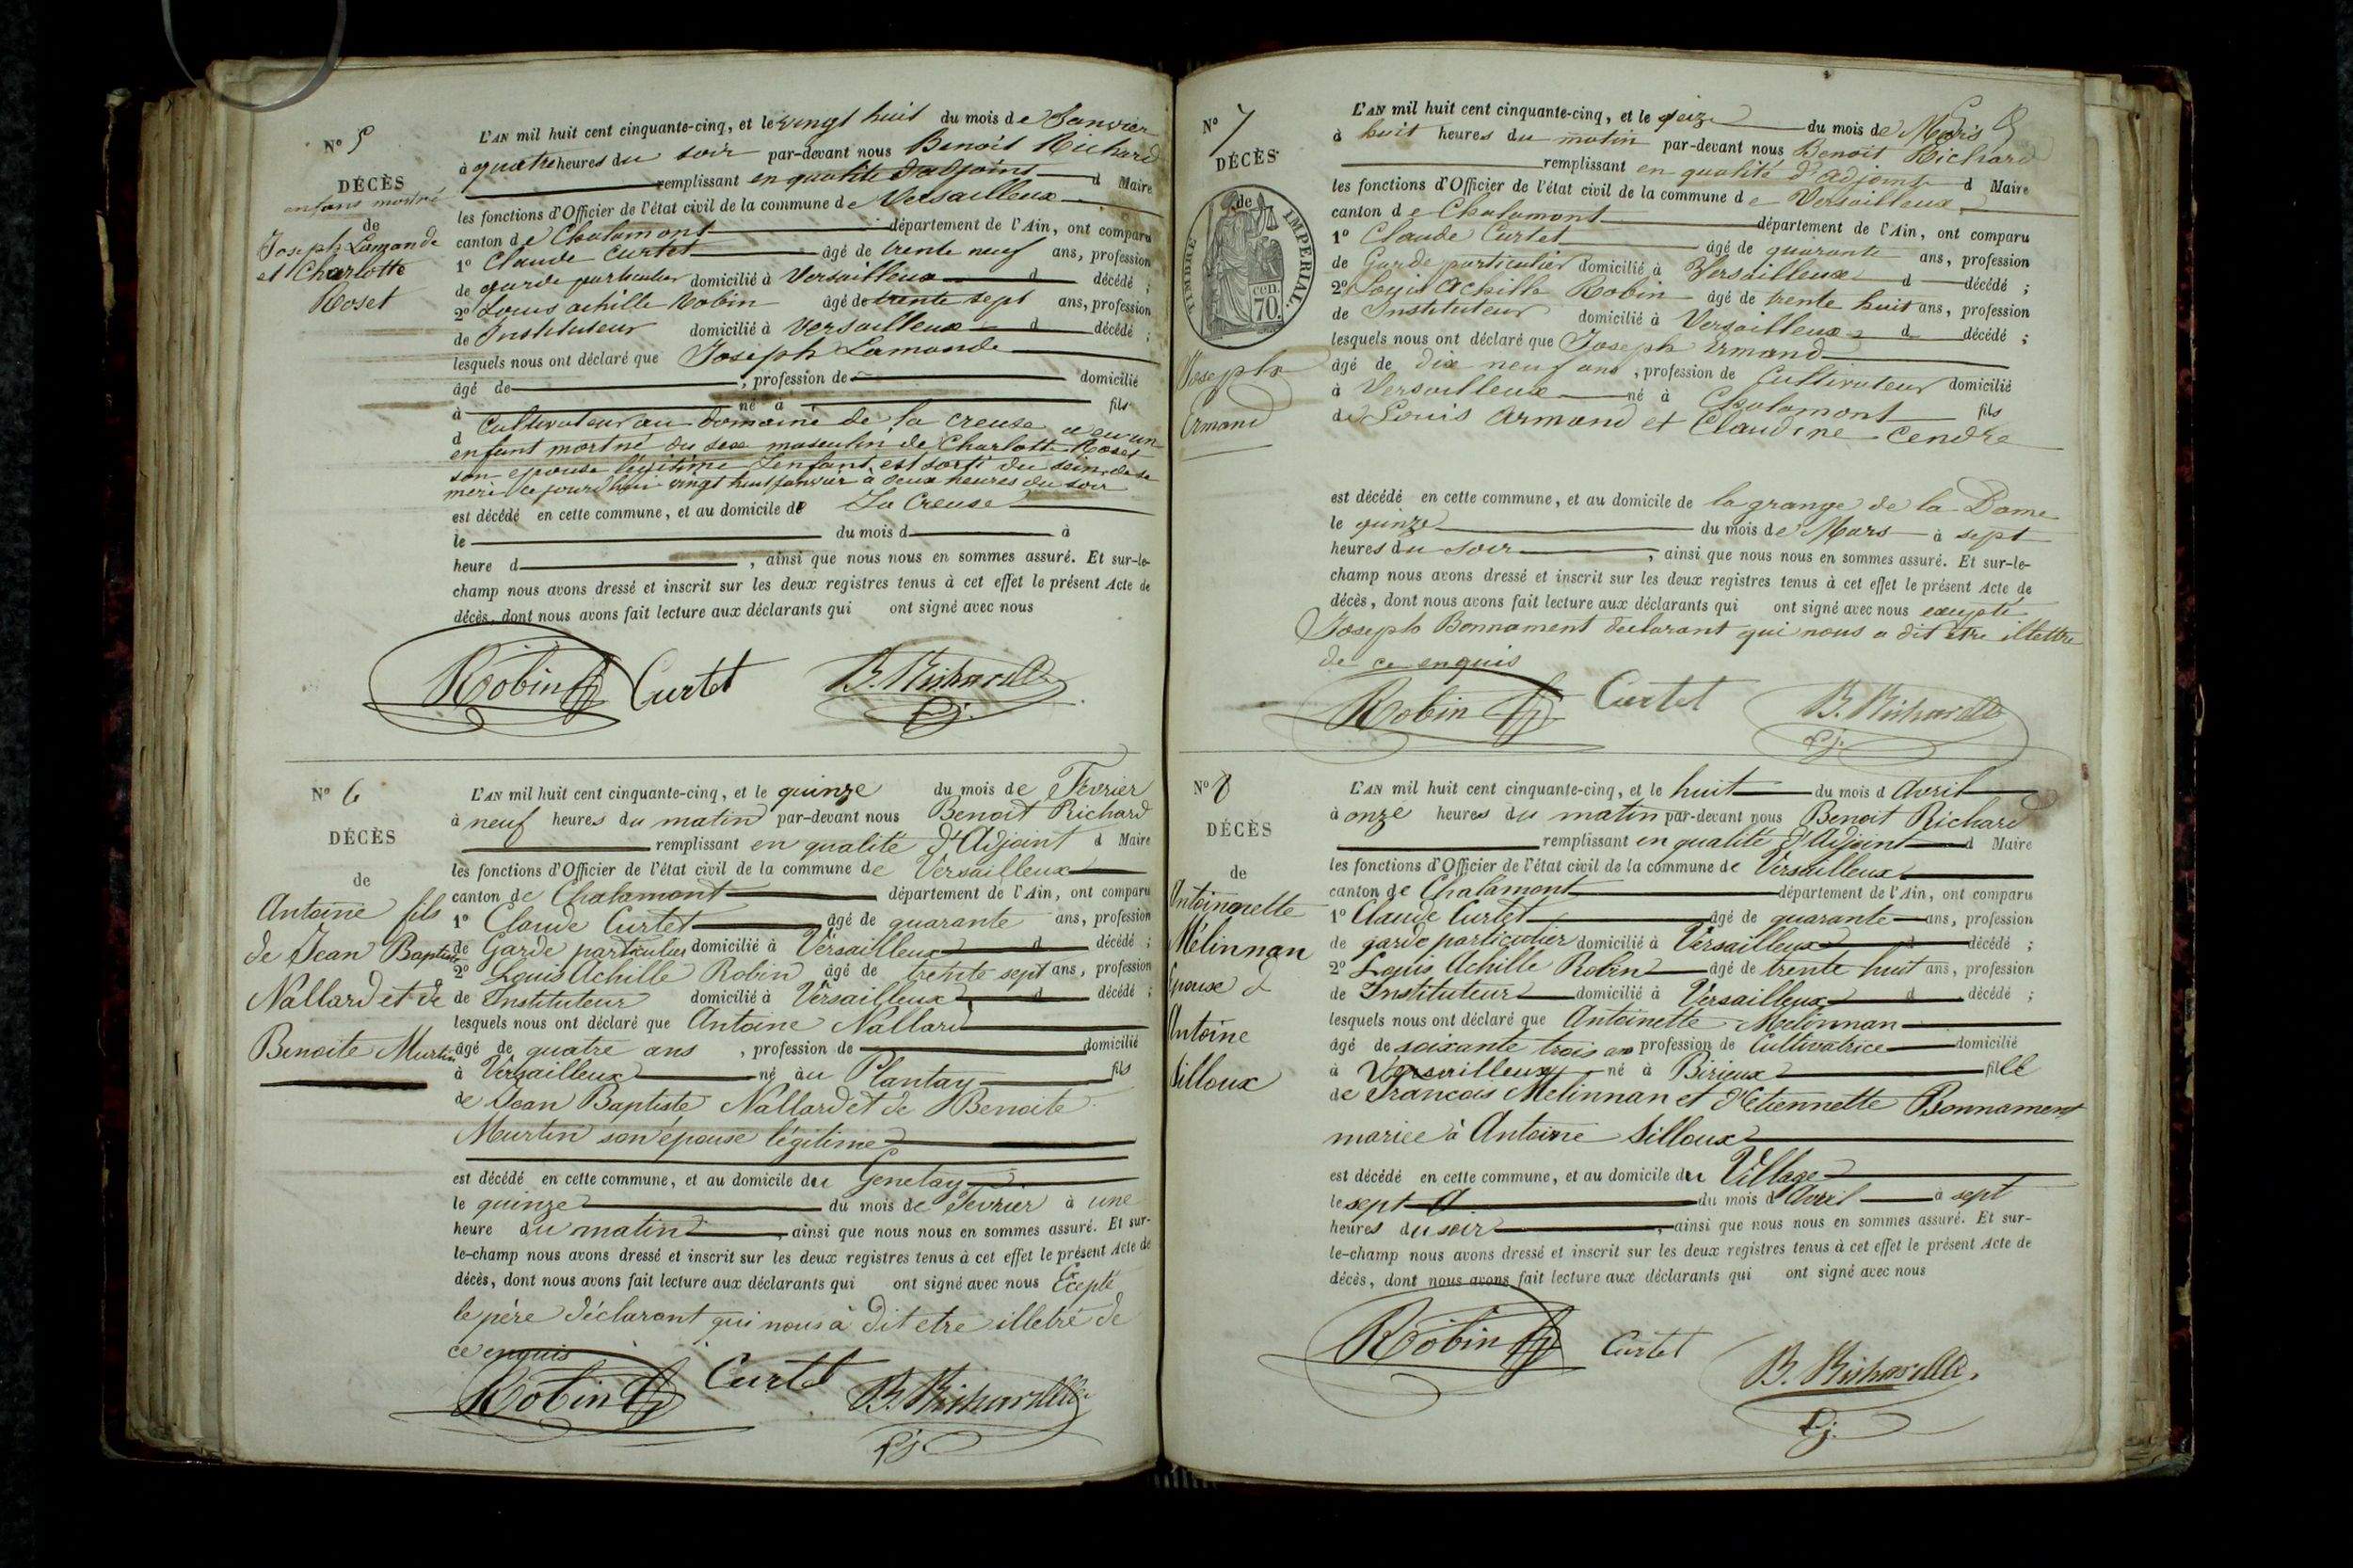 N° 5
DÉCÈS
enfans mortné
de
Joseph Lamande
et Charlotte
Roset
L'AN mil huit cent cinquante-cinq, et le vingt huit du mois de Janvier
à quatre heures du soir par-devant nous Benoit Richard
remplissant en qualité d'adjoint d Maire
les fonctions d'Officier de l'état civil de la commune de Versailleux
canton de Chalamont département de l'Ain, ont comparu
1° Claude Curtet âgé de trente neuf ans, profession
de garde particulier domicilié à Versailleux d décédé ;
2° Louis achille Robin âgé de trente sept ans, profession
de Instituteur domicilié à Versailleux d décédé ;
lesquels nous ont déclaré que Joseph Lamande
âgé de , profession de domicilié
à né à fils
d Cultivateur au domaine de la creuse a eu un
enfant mortné du sexe masculin de Charlotte Roset
son epouse légitime l'enfant est sorti du sein de sa
mère ce jourd'hui vingt huit janvier à deux heures du soir
est décédé en cette commune, et au domicile de La Creuse
le du mois d à
heure d , ainsi que nous nous en sommes assuré. Et sur-le-
champ nous avons dressé et inscrit sur les deux registres tenus à cet effet le présent Acte de
décès, dont nous avons fait lecture aux déclarants qui ont signé avec nous
Robin Curtet B. Richard
N° 6
DÉCÈS
de
Antoine fils
de Jean Baptiste
Nallard et de
Benoite Murtin
L'AN mil huit cent cinquante-cinq, et le quinze du mois de Février
à neuf heures du matin par-devant nous Benoit Richard
remplissant en qualité d'Adjoint d Maire
les fonctions d'Officier de l'état civil de la commune de Versailleux
canton de Chalamont département de l'Ain, ont comparu
1° Claude Curtet âgé de quarante ans, profession
de Garde particulier domicilié à Versailleux d décédé ;
2° Louis Achille Robin âgé de trente sept ans, profession
de Instituteur domicilié à Versailleux d décédé ;
lesquels nous ont déclaré que Antoine Nallard
âgé de quatre ans , profession de domicilié
à Versailleux né au Plantay fils
de Jean Baptiste Nallard et de Benoite
Murtin son épouse légitime
est décédé en cette commune, et au domicile du Genetay
le quinze du mois de Fevrier à une
heure du matin , ainsi que nous nous en sommes assuré. Et sur-
le-champ nous avons dressé et inscrit sur les deux registres tenus à cet effet le présent Acte de
décès, dont nous avons fait lecture aux déclarants qui ont signé avec nous Excepté
le père déclarant qui nous à dit etre illetré de
ce enquis
Robin Curtet B. Richard
N° 7
DÉCÈS
de
TIMBRE IMPÉRIAL.
cen.
70.
Joseph
Ermand
L'AN mil huit cent cinquante-cinq, et le seize du mois de Mars
à huit heures du matin par-devant nous Benoit Richard
remplissant en qualité d'adjoint d Maire
les fonctions d'Officier de l'état civil de la commune de Versailleux
canton de Chalamont département de l'Ain, ont comparu
1° Claude Curtet âgé de quarante ans, profession
de Garde particulier domicilié à Versailleux d décédé ;
2° Louis Achille Robin âgé de trente huit ans, profession
de Instituteur domicilié à Versailleux d décédé ;
lesquels nous ont déclaré que Joseph Ermand
âgé de dix neuf ans , profession de Cultivateur domicilié
à Versailleux né à Chalamont fils
de Louis Armand et Claudine Cendre
est décédé en cette commune, et au domicile de la grange de la Dame
le quinze du mois de Mars à sept
heures du soir , ainsi que nous nous en sommes assuré. Et sur-le-
champ nous avons dressé et inscrit sur les deux registres tenus à cet effet le présent Acte de
décès, dont nous avons fait lecture aux déclarants qui ont signé avec nous excepté
Joseph Bonnament declarant qui nous a dit etre illettre
de ce enquis
Robin Curtet B. Richard
N° 8
DÉCÈS
de
Antoinnette
Mélinnan
Epouse d
Antoine
Silloux
L'AN mil huit cent cinquante-cinq, et le huit du mois d Avril
à onze heures du matin par-devant nous Benoit Richard
remplissant en qualité d'Adjoint d Maire
les fonctions d'Officier de l'état civil de la commune de Versailleux
canton de Chalamont département de l'Ain, ont comparu
1° Claude Curtet âgé de quarante ans, profession
de garde particulier domicilié à Versailleux d décédé ;
2° Louis Achille Robin âgé de trente huit ans, profession
de Instituteur domicilié à Versailleux d décédé ;
lesquels nous ont déclaré que Antoinette Melinnan
âgé de soixante trois ans profession de Cultivatrice domicilié
à Versailleux né à Birieux fille
de Francois Melinnan et d'Etiennette Bonnament
mariée à Antoine Silloux
est décédé en cette commune, et au domicile du Village
le sept du mois d'Avril à sept
heures du soir , ainsi que nous nous en sommes assuré. Et sur-
le-champ nous avons dressé et inscrit sur les deux registres tenus à cet effet le présent Acte de
décès, dont nous avons fait lecture aux déclarants qui ont signé avec nous
Robin Curtet B. Richard